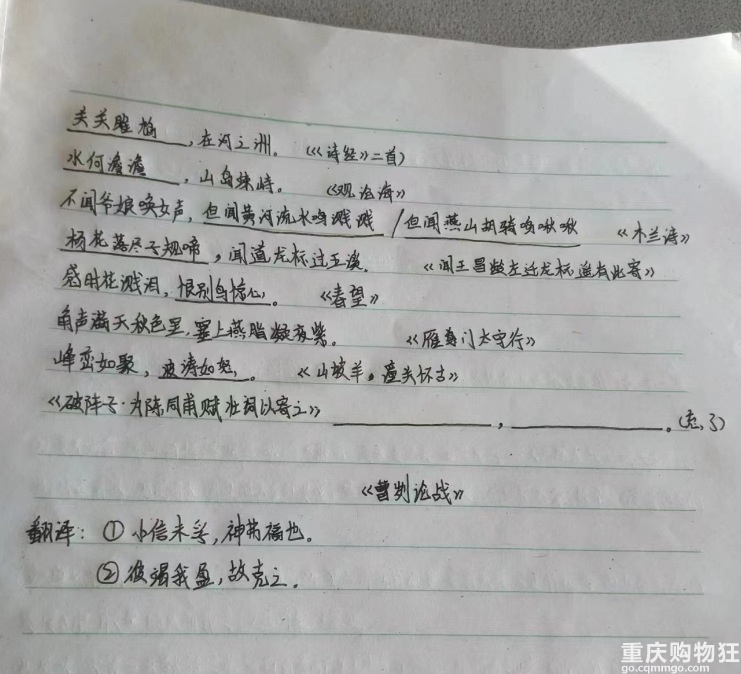 关关雎鸠，在河之洲。《《诗经》二首）
水何澹澹，山岛竦峙。《观沧海》
不闻爷娘唤女声，但闻黄河流水鸣溅溅/但闻燕山胡骑鸣啾啾 《木兰诗》
杨花落尽子规啼，闻道龙标过五溪。《闻王昌龄左迁龙标遥有此寄》
感时花溅泪，恨别鸟惊心。《春望》
角声满天秋色里，塞上燕脂凝夜紫。《雁门太守行》
峰峦如聚，波涛如怒。《山坡羊·潼关怀古》
《破阵子·为陈同甫赋壮词以寄之》________，________。
《曹刿论战》
翻译：①小信未孚，神弗福也。
②彼竭我盈，故克之。
重庆购物狂
go.cqmmgo.com